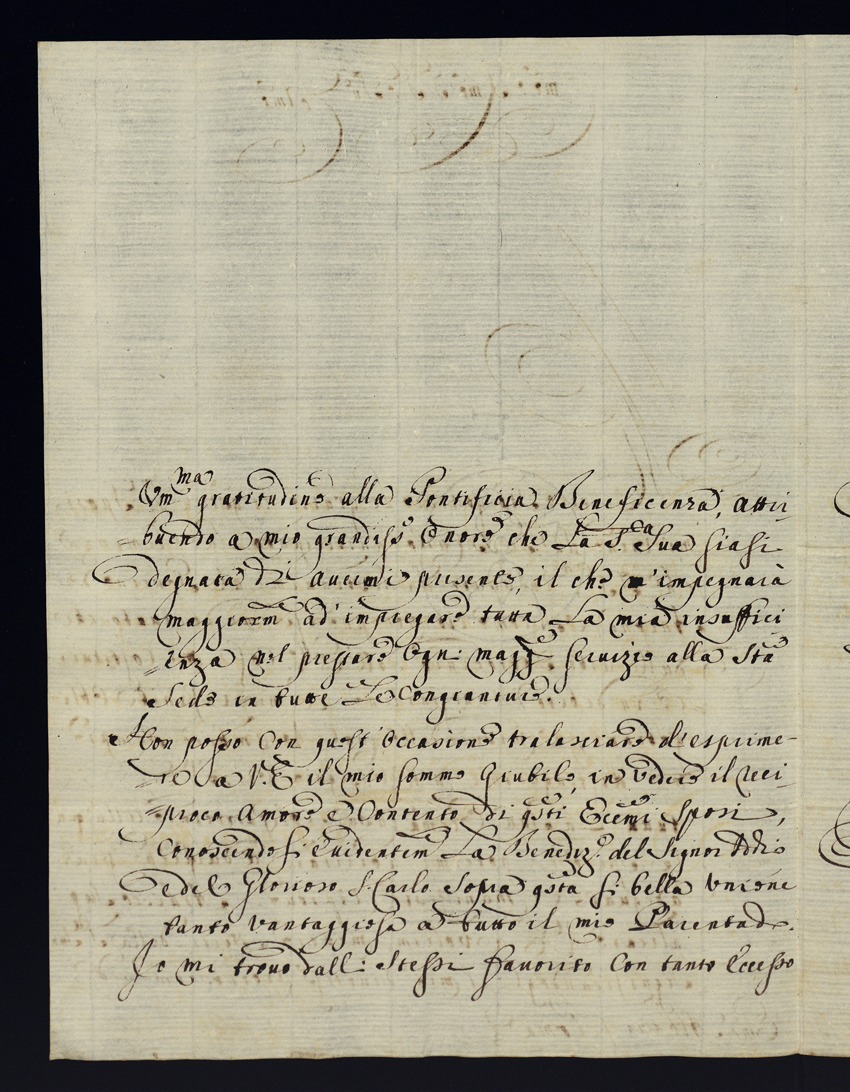 Um.ma gratitudine alla Pontificia Beneficenza, attri-
=buendo a mio grandiss.o Onore che La S.ta Sua siasi
degnata di avermi presente, il che m'impegnarà
maggiorm.te ad' impiegare tutta La mia insuffici
=enza nel prestare Ogni magg.re servizio alla S.ta
Sede in tutte Le Congionture.
Non posso Con quest' Occasione tralasciare d'esprime-
=re a V.E. il mio sommo Giubilo, in vedere il reci-
=proco Amore e Contento di q.sti Ecc.mi Sposi,
Conoscendosi Evidentem.te La Benediz.e del Signor Iddio
e del Glorioso S. Carlo Sopra q.sta si bella Unione
tanto vantaggiosa a tutto il mio Parentado.
Io mi trovo dall: Stessi favorito Con tanto Eccesso